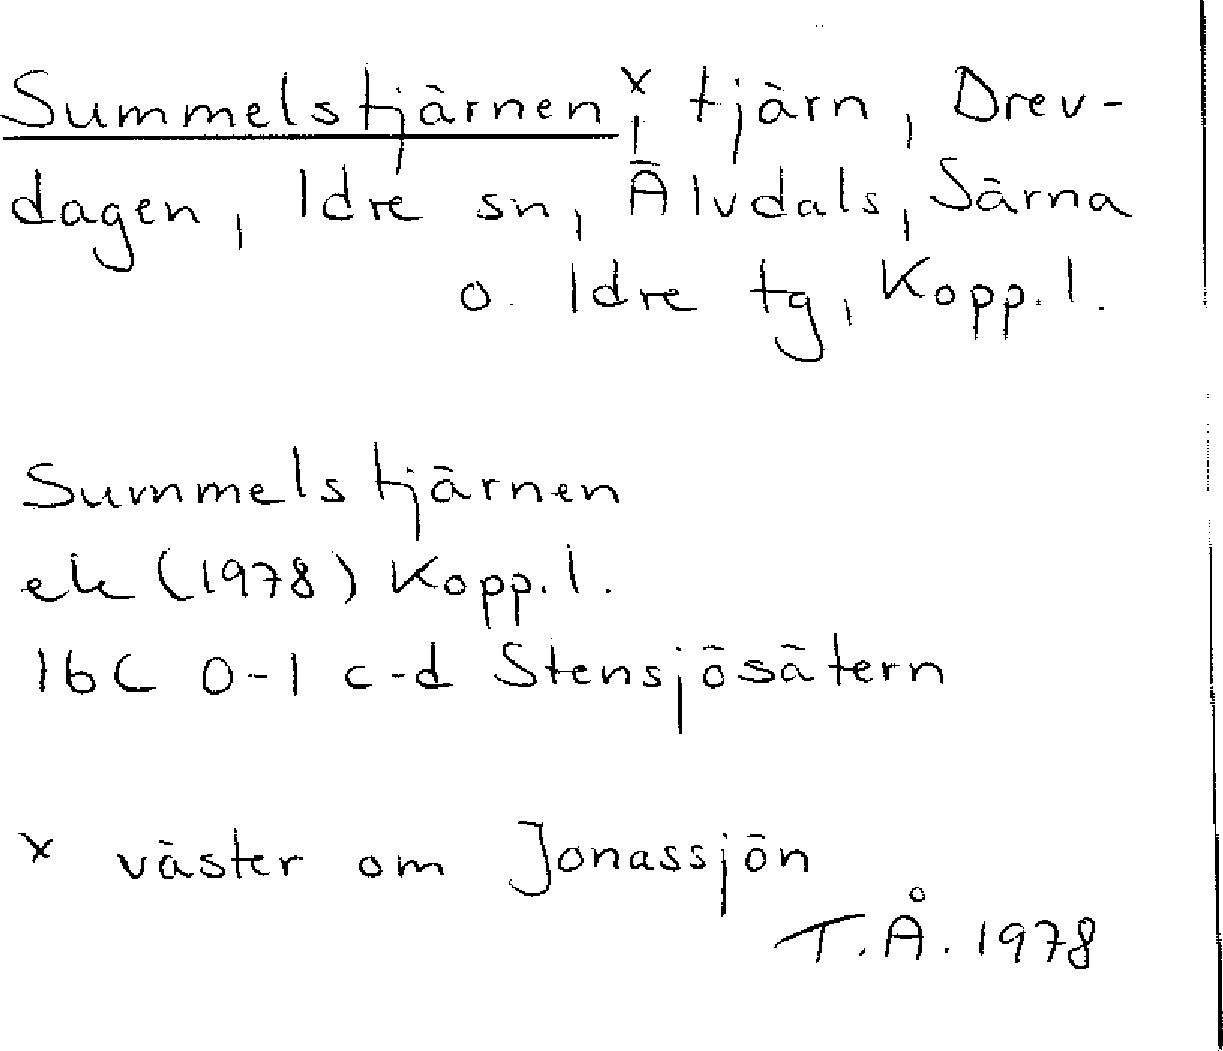 Summelstjärnen,ˣ tjärn, Drev-
dagen, Idre sn, Älvdals, Särna
o. Idre tg, Kopp. l.
Summelstjärnen
ek (1978) Kopp. l.
16C 0-1 c-d Stensjösätern
x väster om Jonassjön
T.Å. 1978